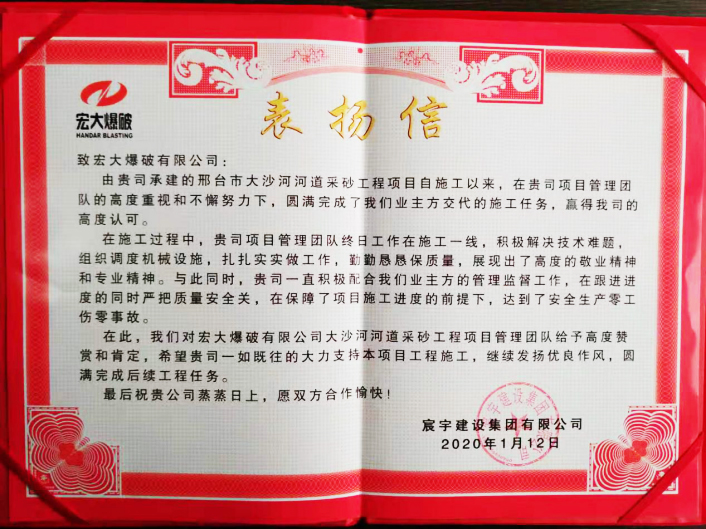 宏大爆破
HANDAR BLASTING
表扬信
致宏大爆破有限公司：
由贵司承建的邢台市大沙河河道采砂工程项目自施工以来，在贵司项目管理团
队的高度重视和不懈努力下，圆满完成了我们业主方交代的施工任务，赢得我司的
高度认可。
在施工过程中，贵司项目管理团队终日工作在施工一线，积极解决技术难题，
组织调度机械设施，扎扎实实做工作，勤勤恳恳保质量，展现出了高度的敬业精神
和专业精神。与此同时，贵司一直积极配合我们业主方的管理监督工作，在跟进进
度的同时严把质量安全关，在保障了项目施工进度的前提下，达到了安全生产零工
伤零事故。
在此，我们对宏大爆破有限公司大沙河河道采砂工程项目管理团队给予高度赞
赏和肯定，希望贵司一如既往的大力支持本项目工程施工，继续发扬优良作风，圆
满完成后续工程任务。
最后祝贵公司蒸蒸日上，愿双方合作愉快！
宸宇建设集团有限公司
2020年1月12日